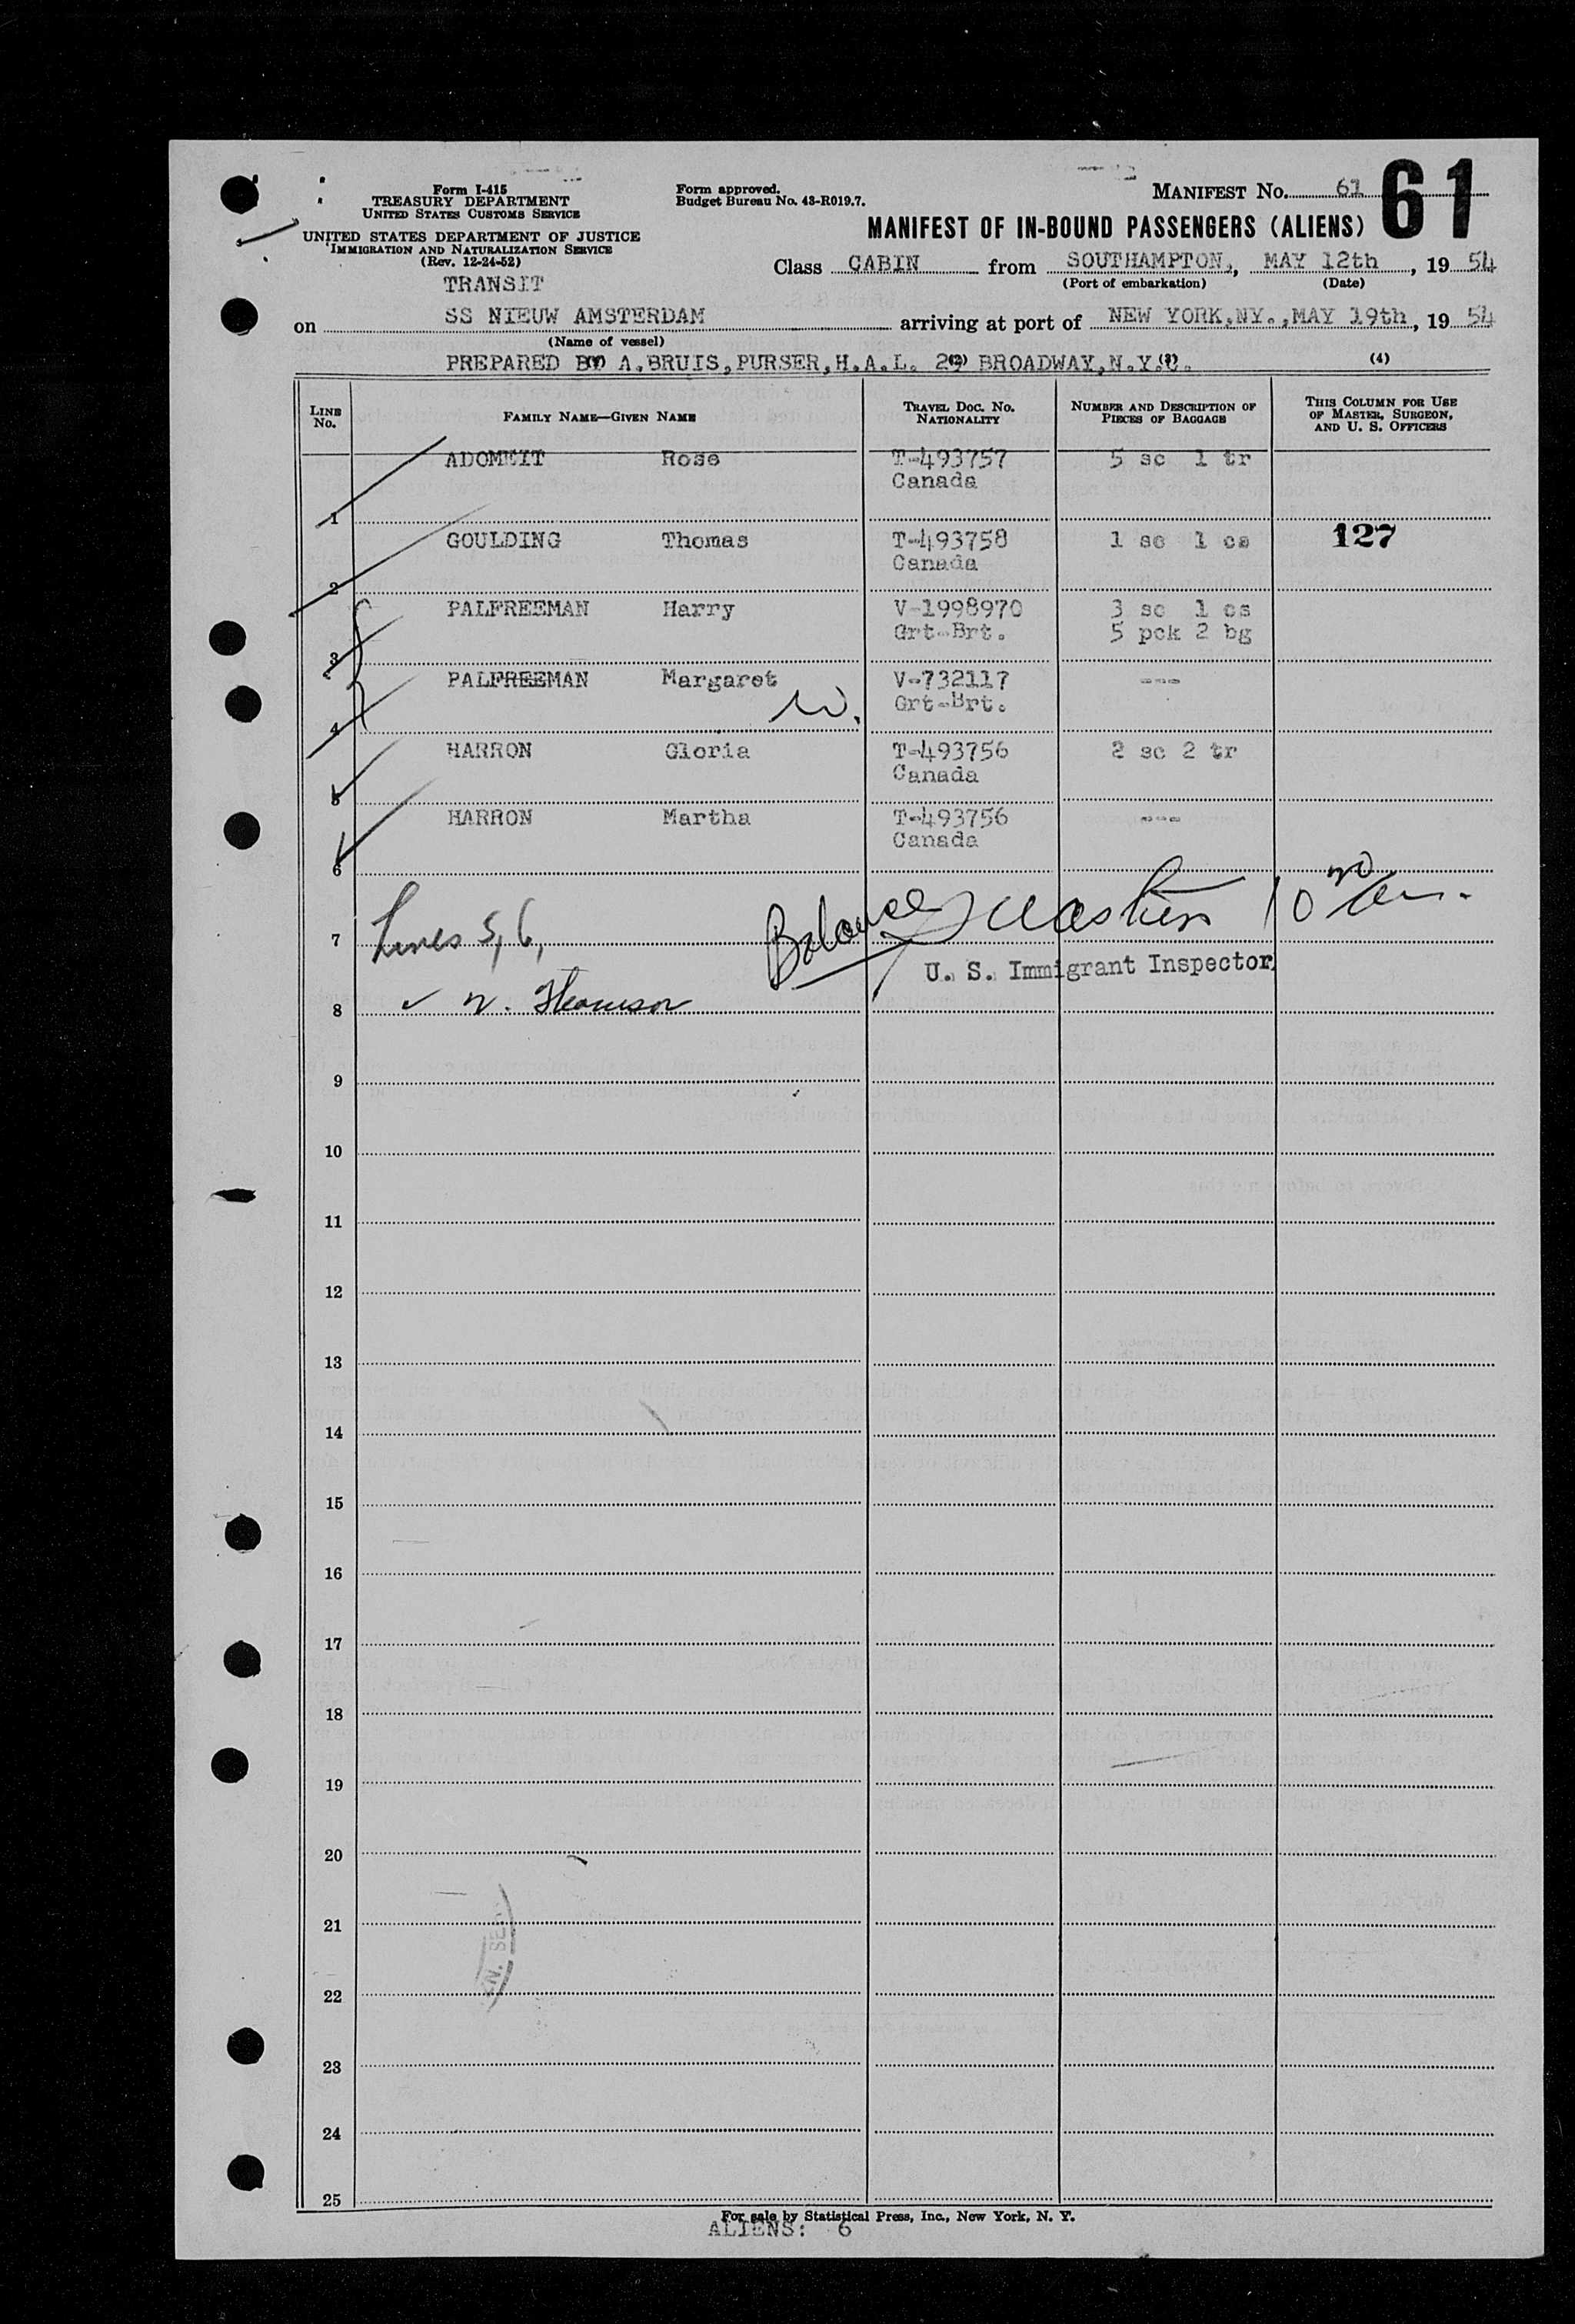 Form I-415
TREASURY DEPARTMENT
UNITED STATES CUSTOMS SERVICE
UNITED STATES DEPARTMENT OF JUSTICE
IMMIGRATION AND NATURALIZATION SERVICE
(Rev. 12-24-52)
TRANSIT
Form approved.
Budget Bureau No. 43-R019.7.
MANIFEST No. 61 61
MANIFEST OF IN-BOUND PASSENGERS (ALIENS)
Class CABIN from SOUTHAMPTON, MAY 12th, 19 54
(Port of embarkation) (Date)
on SS NIEUW AMSTERDAM arriving at port of NEW YORK,NY.,MAY 19th, 19 54
(Name of vessel)
PREPARED BY A.BRUIS,PURSER,H.A.L. BROADWAY,N.Y.C. (4)
LINE No. FAMILY NAME—GIVEN NAME TRAVEL DOC. NO. NATIONALITY NUMBER AND DESCRIPTION OF PIECES OF BAGGAGE THIS COLUMN FOR USE OF MASTER, SURGEON, AND U. S. OFFICERS
ADOMEIT Rose T-493757 5 sc 1 tr
Canada
1
GOULDING Thomas T-493758 1 sc 1 cs 127
Canada
2
PALFREEMAN Harry V-1998970 3 sc 1 cs
Grt-Brt. 5 pck 2 bg
3
PALFREEMAN Margaret V-732117 ---
W. Grt-Brt.
4
HARRON Gloria T-493756 2 sc 2 tr
Canada
5
HARRON Martha T-493756 ---
Canada
6
Balance
7 Lines 5, 6,
U. S. Immigrant Inspector
8
9
10
11
12
13
14
15
16
17
18
19
20
21
22
23
24
25
For sale by Statistical Press, Inc., New York, N. Y.
ALIENS: 6